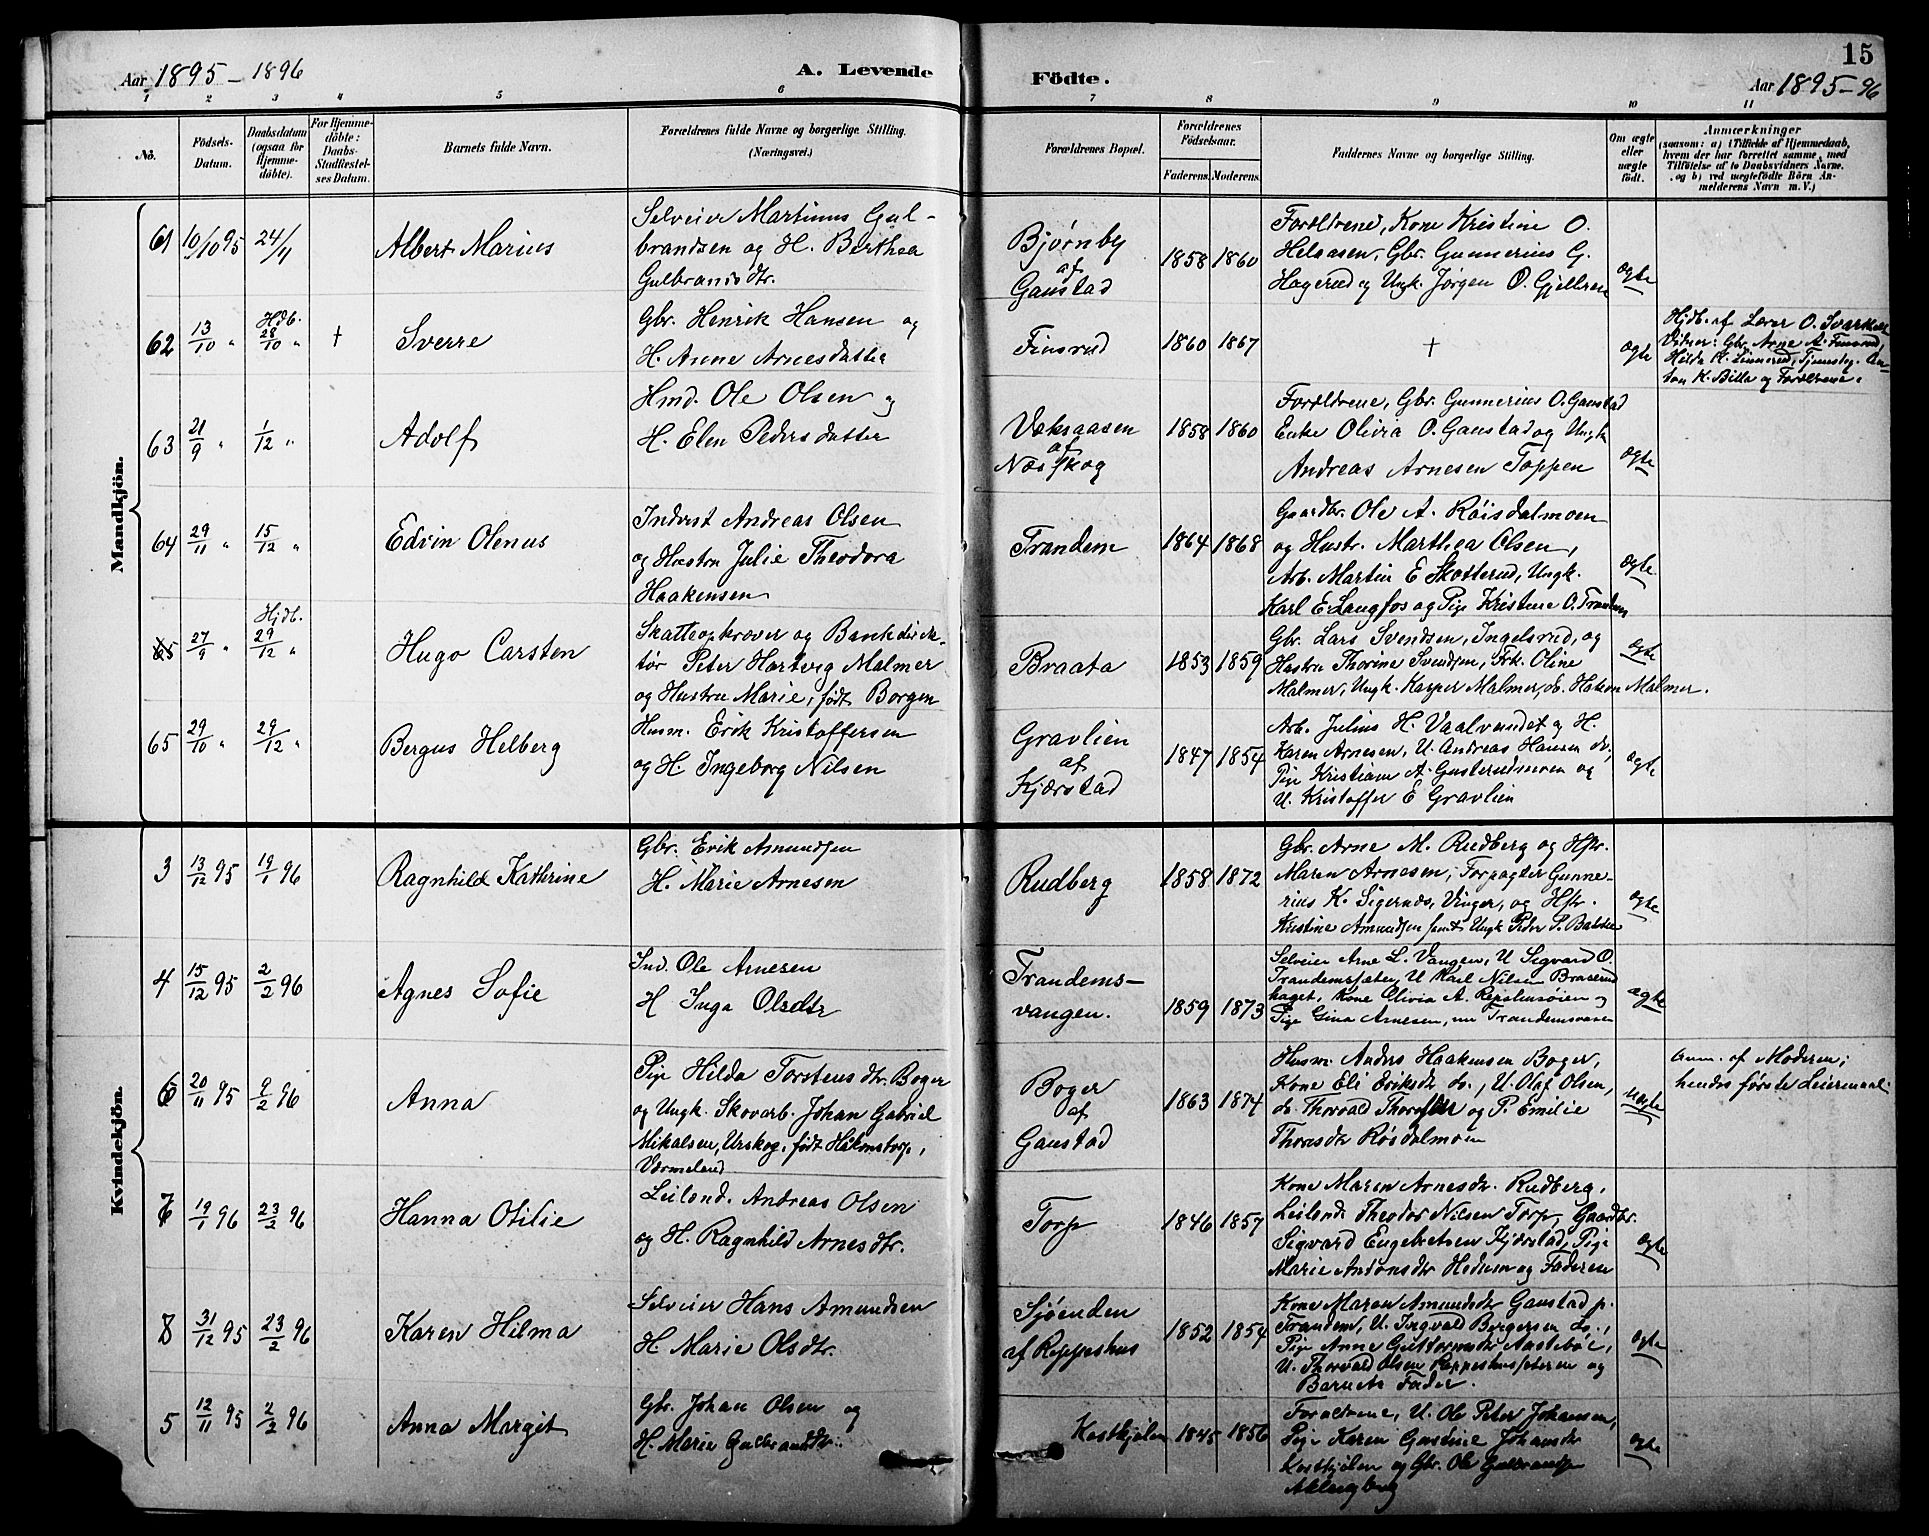 15
Aar 1895-1896
A. Levende
Födte.
Aar 1895-96
1 2 3 4 5 6 7 8 9 10 11
Nô.
Födsels-
Datum.
Daabsdatum
(ogsaa for
Hjemme-
döbte).
For Hjemme-
döbte:
Daabs-
Stadfæstel-
ses Datum.
Barnets fulde Navn.
Forældrenes fulde Navne og borgerlige Stilling.
(Næringsvei.)
Forældrenes Bopæl.
Forældrenes
Födselsaar.
Faderens. Moderens.
Faddernes Navne og borgerlige Stilling.
Om ægte
eller
uægte
födt.
Anmærkninger
(saasom: a) i Tilfælde af Hjemmedaab,
hvem der har forrettet samme, med
Tilföielse af to Daabsvidners Navne,
og b) ved uægtefödte Börn An-
melderens Navn m.V.)
Mandkjön.
61 10/10 95 24/11
Albert Marius
Selveier Martinus Gul-
brandsen og H. Berthea
Gulbrandsdtr.
Bjørnby
af
Gaustad
1858 1860
Forældrene, Kone Kristine O.
Helaasen, Gbr. Gunnerius G.
Hagerud og Ungk. Jørgen O. Gjellren
ægte
62 13/10 " Hdb. 28/10 " +
Sverre
Gbr. Henrik Hansen og
H. Anne Arnesdatter
Finsrud
1860 1867
+
ægte
Hjdb. af Lærer O. Svarkali
Vidner: Gbr. Arne A. Finsrud,
Hilda K. Linnerud, Tjenestep. An-
ton K. Billa og Forældrene.
63 21/9 " 1/12 "
Adolf
Hmd. Ole Olsen og
H. Elen Pedersdatter
Væksaasen
af
Næsskog
1858 1860
Forældrene, Gbr. Gunnerius O. Gaustad
Enke Olivia O. Gaustad og Ungk
Andreas Arnesen Toppen
ægte
64 29/11 " 15/12 "
Edvin Olenus
Inderst Andreas Olsen
og Hustru Julie Theodora
Haakensen
Trandem
1864 1868
Gaardbr. Ole A. Röisdalmoen
og Hustr. Marthea Olsen,
Arb. Martin E Skotterud, Ungk.
Karl E. Langfos og Pige Kristine O. Trandem
ægte
65 27/9 " Hjdb. 29/12 "
Hugo Carsten
Skatteopkræver og Bankdirek-
tør Peter Hartvig Malmer
og Hustru Marie, født Borgen
Braata
1853 1859
Gbr. Lars Svendsen, Ingelsrud, og
Hustru Thorine Svendsen, Frk. Oline
Malmer, Ungk. Kasper Malmer, do. Hakon Malmer.
ægte
65 29/10 " 29/12 "
Bergus Helberg
Husm. Erik Kristoffersen
og H. Ingeborg Nilsen
Gravlien
af
Kjærstad
1847 1854
Arb. Julius H. Vaalvandet og H.
Karen Arnesen, U. Andreas Hansen do,
Pige Kristiane A. Gusterudmoen og
U. Kristoffer E Gravlien
ægte
Kvindekjön.
3 13/12 95 19/1 96
Ragnhild Kathrine
Gbr. Erik Amundsen
H. Marie Arnesen
Rudberg
1858 1872
Gbr. Arne M. Rudberg og Hstr.
Maren Arnesen, Forpagter Gunne-
rius K. Sigernæs, Vinger, og Hstr.
Kristine Amundsen samt Ungk Peder P.
ægte
4 15/12 95 2/2 96
Agnes Sofie
Ind. Ole Arnesen
H Inga Olsdtr
Trandems-
vangen.
1859 1873
Selveier Arne L. Vangen, U Sigvard O.
Trandemssæten, U Karl Nilsen Braserud
haget, Kone Olivia A. Repstensøien og
Pige Gina Arnesen,
ægte
6 20/11 95 9/2 96
Anna
Pige Hilda Torstensdtr. Boger
og Ungk. Skovarb. Johan Gabriel
Mikalsen, Urskog, født Håkonstorp,
Værmeland
Boger
af
Gaustad
1863 1874
Husm. Anders Haakensen Boger,
Kone Eli Eriksdtr do., U. Olaf Olsen,
do. Thorvald og P. Emilie
Thoresdtr Røsdalmoen
uægte
Anm. af Moderen;
hendes første Leiermaal
7 19/1 96 23/2 96
Hanna Otilie
Leilend. Andreas Olsen
og H. Ragnhild Arnesdtr.
Torp
1846 1857
Kone Maren Arnesdtr. Rudberg,
Leilend Theodor Nilsen Torp, Gaardbr.
Sigvard Engebretsen Kjærstad, Pige
Marie Antonsdtr Hedum og Faderen
ægte
8 31/12 95 23/2 96
Karen Hilma
Selveier Hans Amundsen
H. Marie Olsdtr.
Sjøenden
af Reppeshus
1852 1854
Kone Maren Amundsdtr Gaustad p.
Trandem, U. Ingvald Borgersen do.,
Pige Anne Guttormsdtr Aastebøl,
U. Thorvald Olsen Reppeshussæteren og
Barnets Fader.
ægte
5 12/11 95 2/2 96
Anna Margit
Gbr. Johan Olsen og
H. Marie Gulbrandsdtr.
Kostkjølen
1845 1856
Forældrene, U. Ole Peter Johansen,
Pige Karen Gustine Johansdtr
Kostkjølen og Gbr. Ole Gulbrandsen
ægte